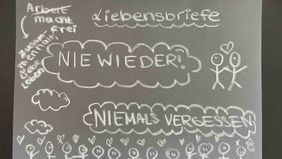 Arbeit
macht
frei
Liebensbriefe
NIE WIEDER!
NIEMALS VERGESSEN